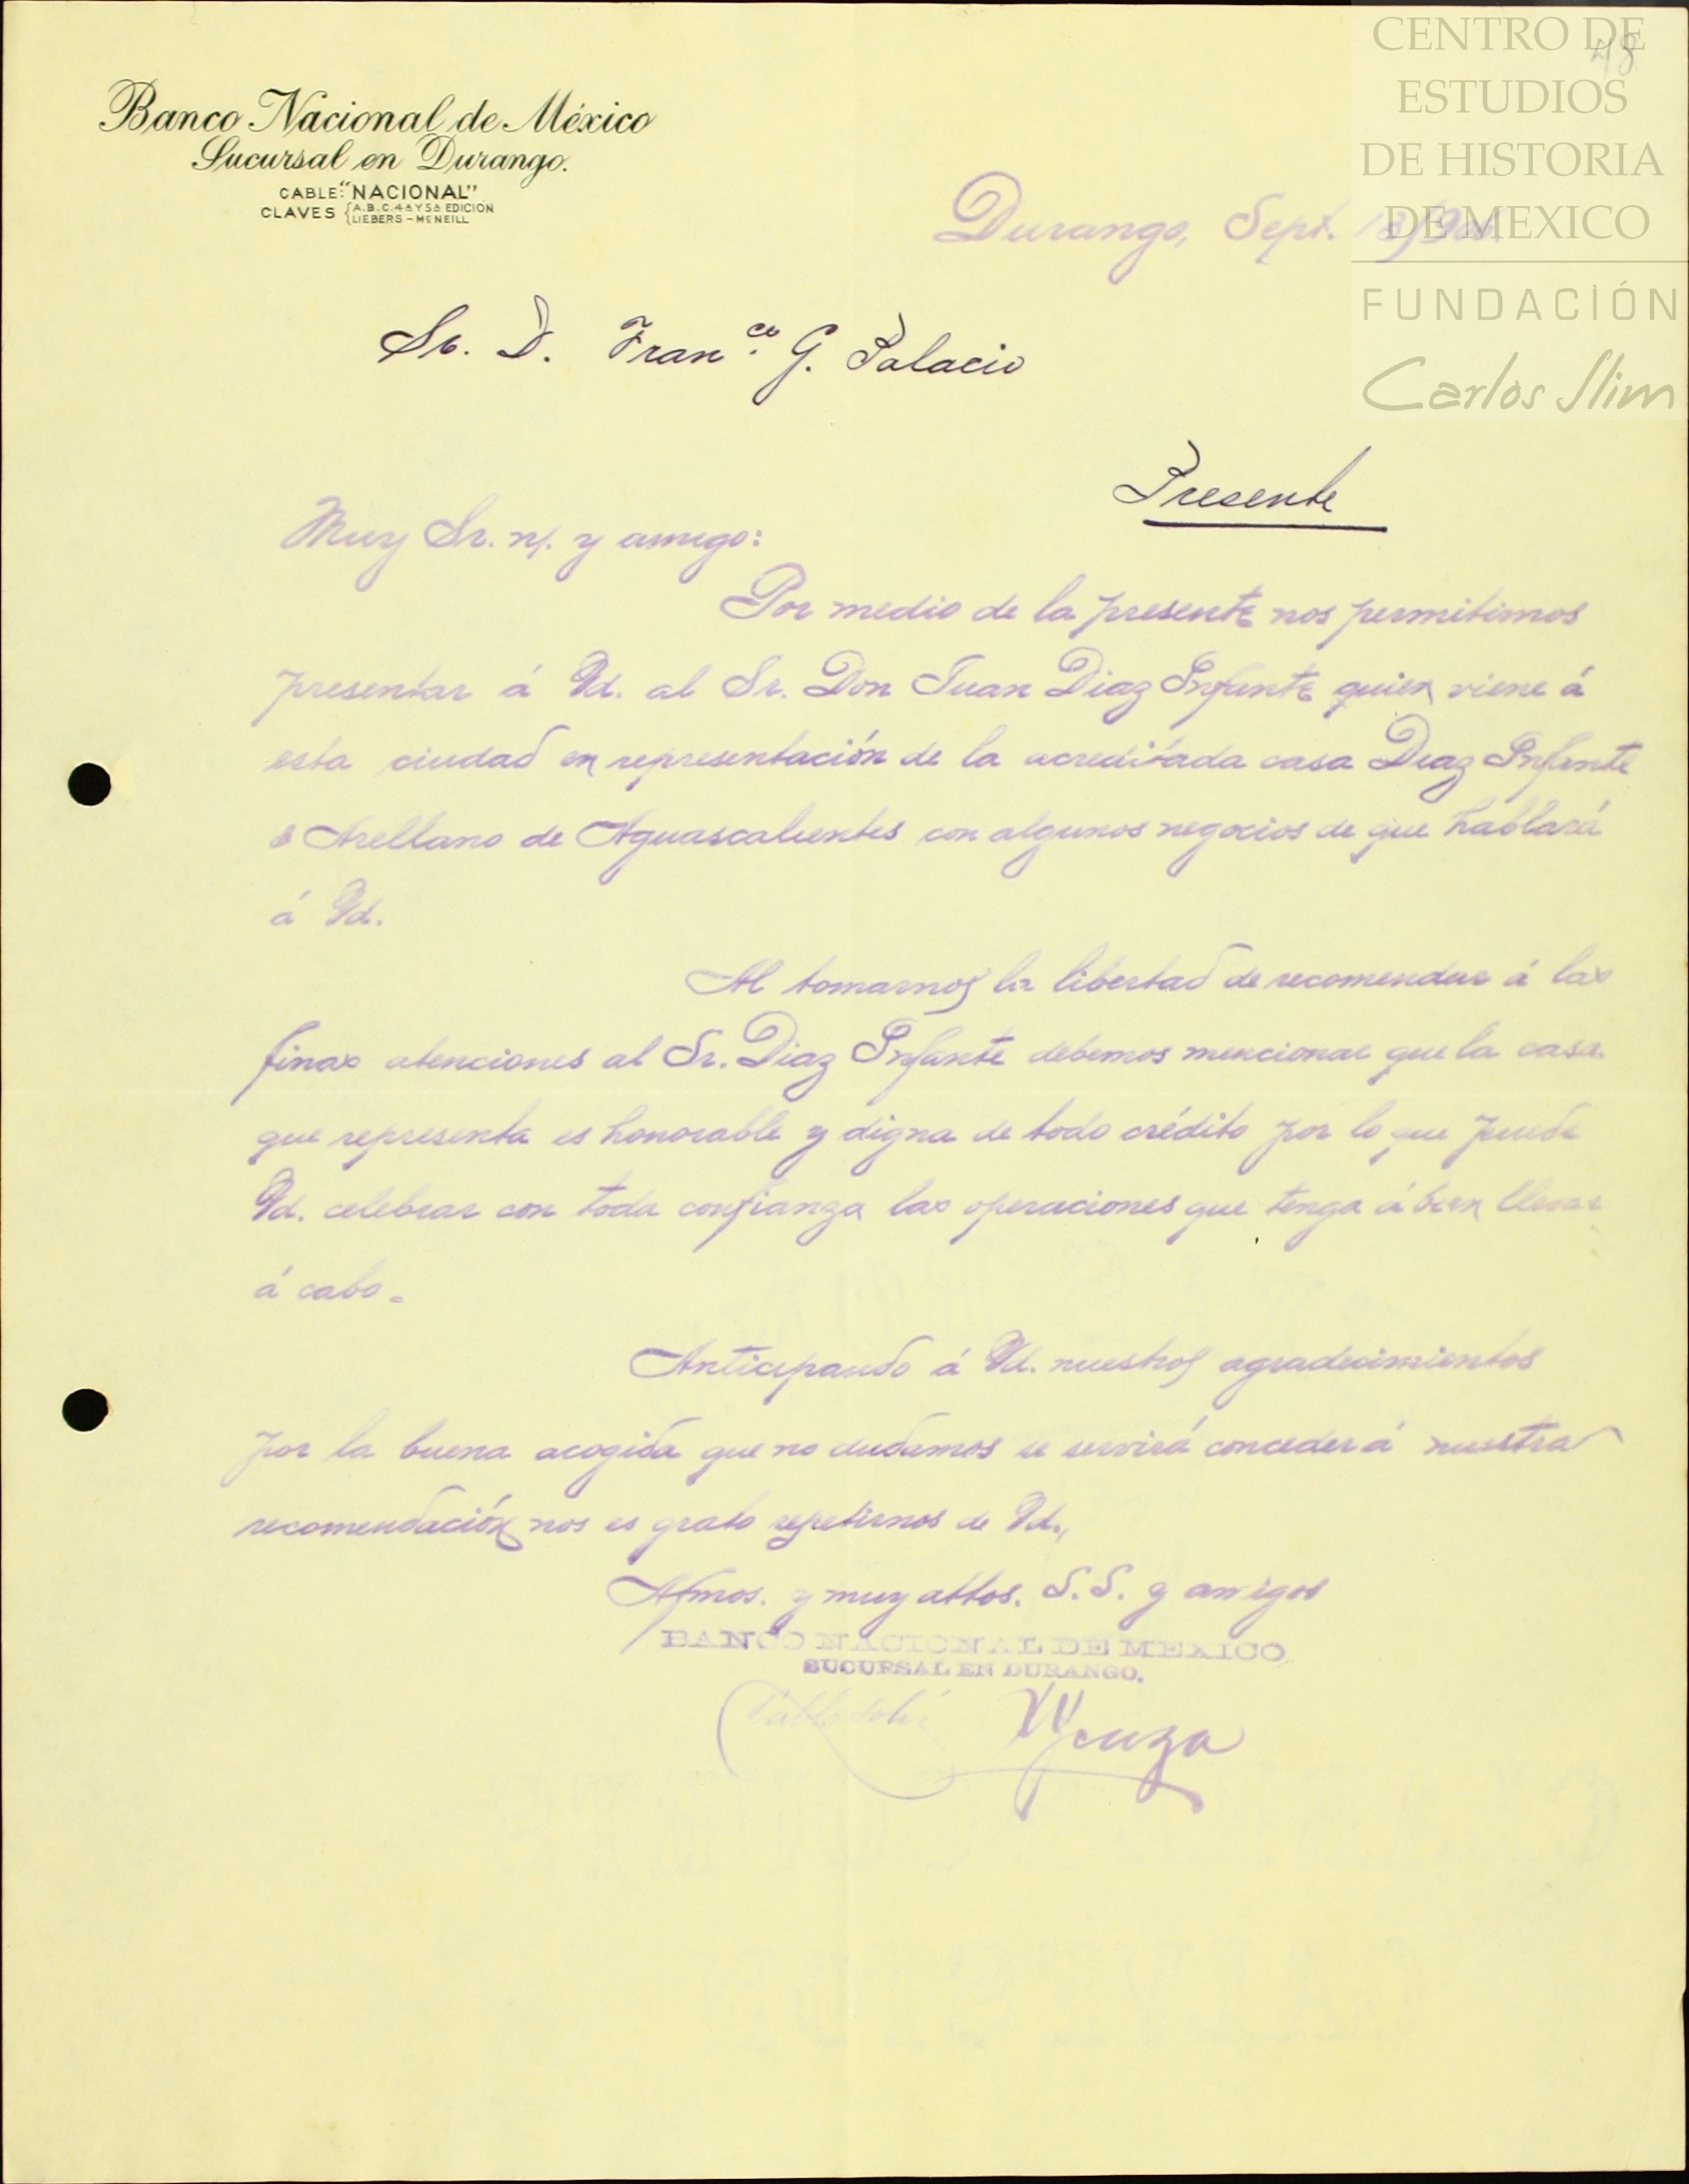 CENTRO DE
48
ESTUDIOS
DE HISTORIA
DE MEXICO
FUNDACIÓN
Carlos Slim
Banco Nacional de México
Sucursal en Durango.
CABLE: "NACIONAL"
CLAVES { A.B.C. 4A Y 5A EDICION
LIEBERS – McNEILL
Durango, Sept.
Sr. D. Franco. G. Palacio
Presente
Muy Sr. n/. y amigo:
Por medio de la presente nos permitimos
presentar á Vd. al Sr. Don Juan Diaz Infante quien viene á
esta ciudad en representación de la acreditada casa Diaz Infante
& Arellano de Aguascalientes con algunos negocios de que hablará
á Vd.
Al tomarnos la libertad de recomendar á las
finas atenciones al Sr. Diaz Infante debemos mencionar que la casa
que representa es honorable y digna de todo crédito por lo que puede
Vd. celebrar con toda confianza las operaciones que tenga á bien llevar
á cabo.
Anticipando á Vd. nuestros agradecimientos
por la buena acogida que no dudamos se servirá conceder á nuestra
recomendación nos es grato repetirnos de Vd.,
Afmos. y muy attos. S.S. y amigos
BANCO NACIONAL DE MEXICO
SUCURSAL EN DURANGO.